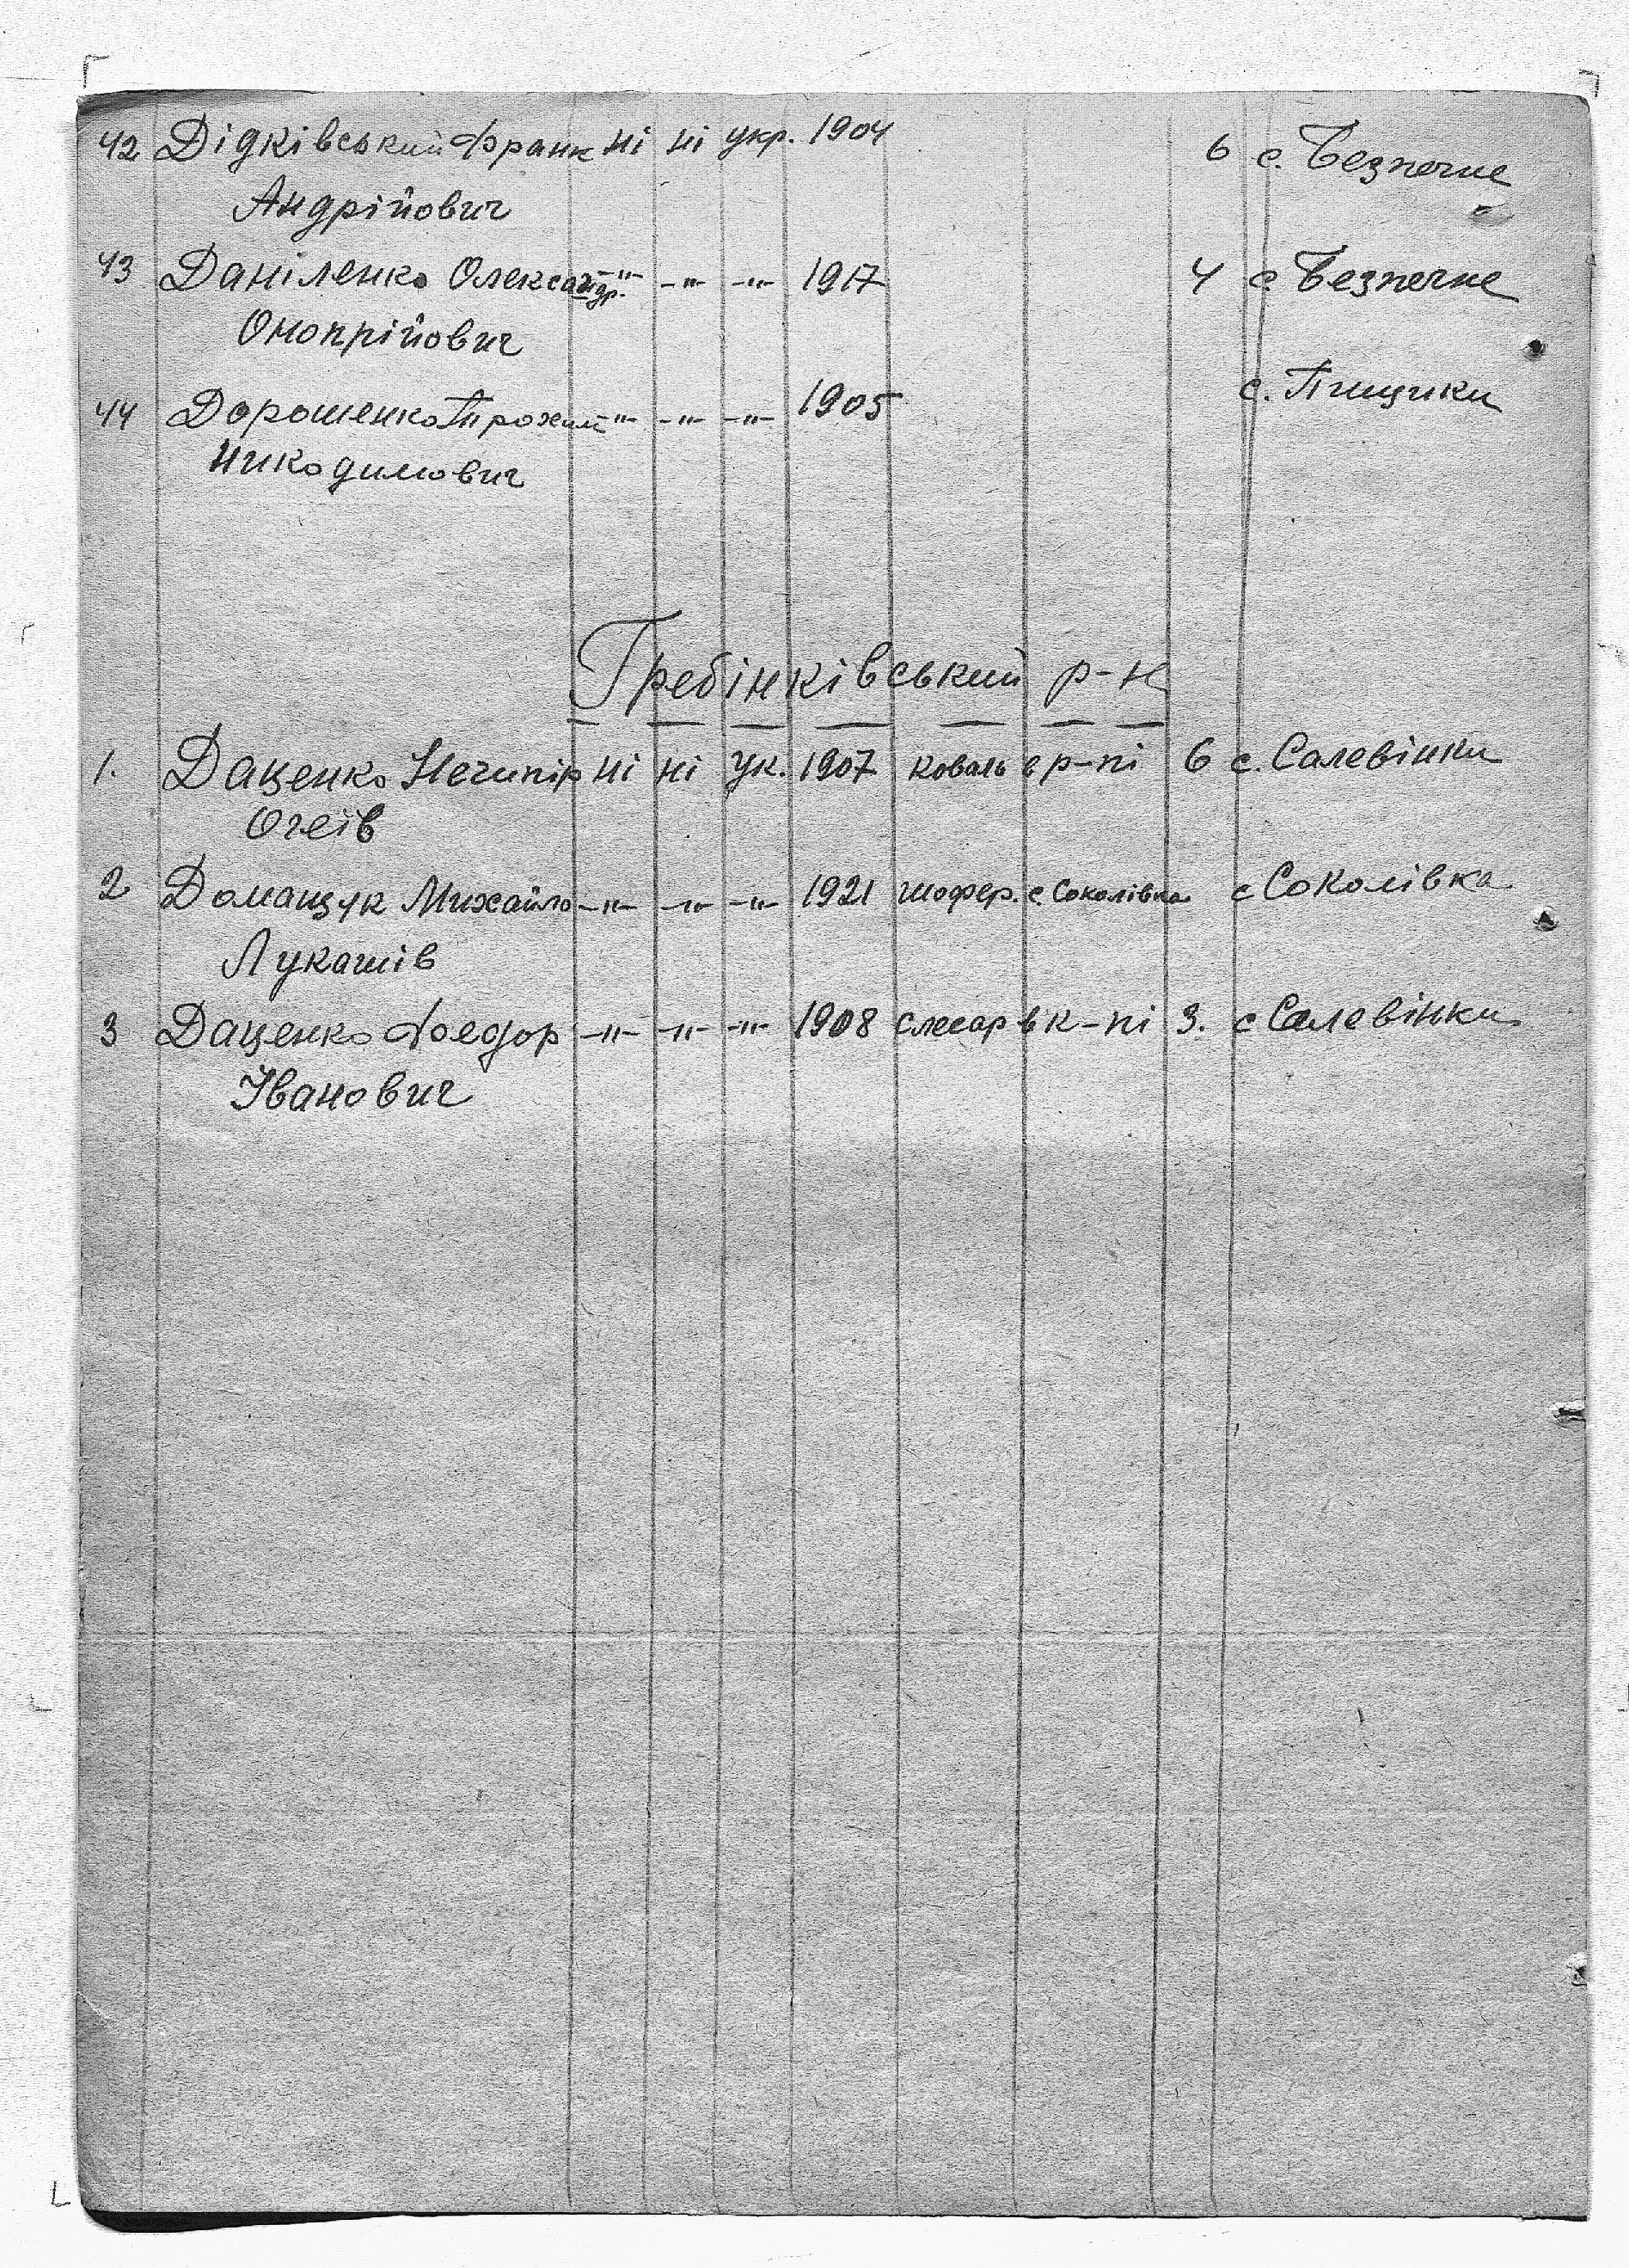 42 Дідківський Франк ні ні укр. 1904 6 с. Безпечне
Андрійович
43 Даніленко Олександр. -"- -"- -"- 1917 4 с. Безпечне
Онопрійович
44 Дорошенко Прохим -"- -"- -"- 1905 с. Пищики
Никодимович
Гребінківський р-н
1. Даценко Нечипір ні ні ук. 1907 коваль в р-пі 6 с. Салевінки
Очеїв
2 Доманцук Михайло -"- -"- -"- 1921 шофер. с. Соколівка с Соколівка
Лукашів
3 Даценко Фоедор -"- -"- -"- 1908 слесар в к-пі 3. с Салевінки
Іванович